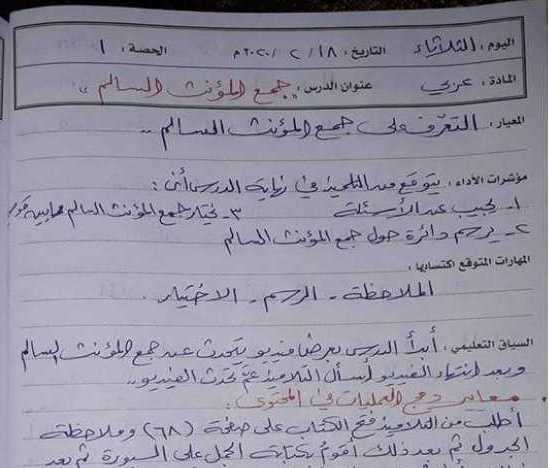 اليوم : الثلاثاء التاريخ : ١٨ / ٢ / ٢٠٢٠م الحصة : ١
المادة : عربي عنوان الدرس : "جمع المؤنث السالم"
المعيار : التعرف على جمع المؤنث السالم ..
مؤشرات الأداء : يتوقع من التلميذ في نهاية الدرس أن :
١- يجيب عن الأسئلة ٣- يختار جمع المؤنث السالم مما بين
٢- يرسم دائرة حول جمع المؤنث السالم
المهارات المتوقع اكتسابها :
الملاحظة - الرسم - الاختيار .
السياق التعليمي : أبدأ الدرس بعرض فيديو يتحدث عن جمع المؤنث السالم
وبعد انتهاء الفيديو أسأل التلاميذ عمَّ تحدث الفيديو ..
معايير دمج العمليات في المحتوى :
أطلب من التلاميذ فتح الكتاب على صفحة (٦٨) وملاحظة
الجدول ثم بعد ذلك أقوم بكتابة الجمل على السبورة ثم بعد